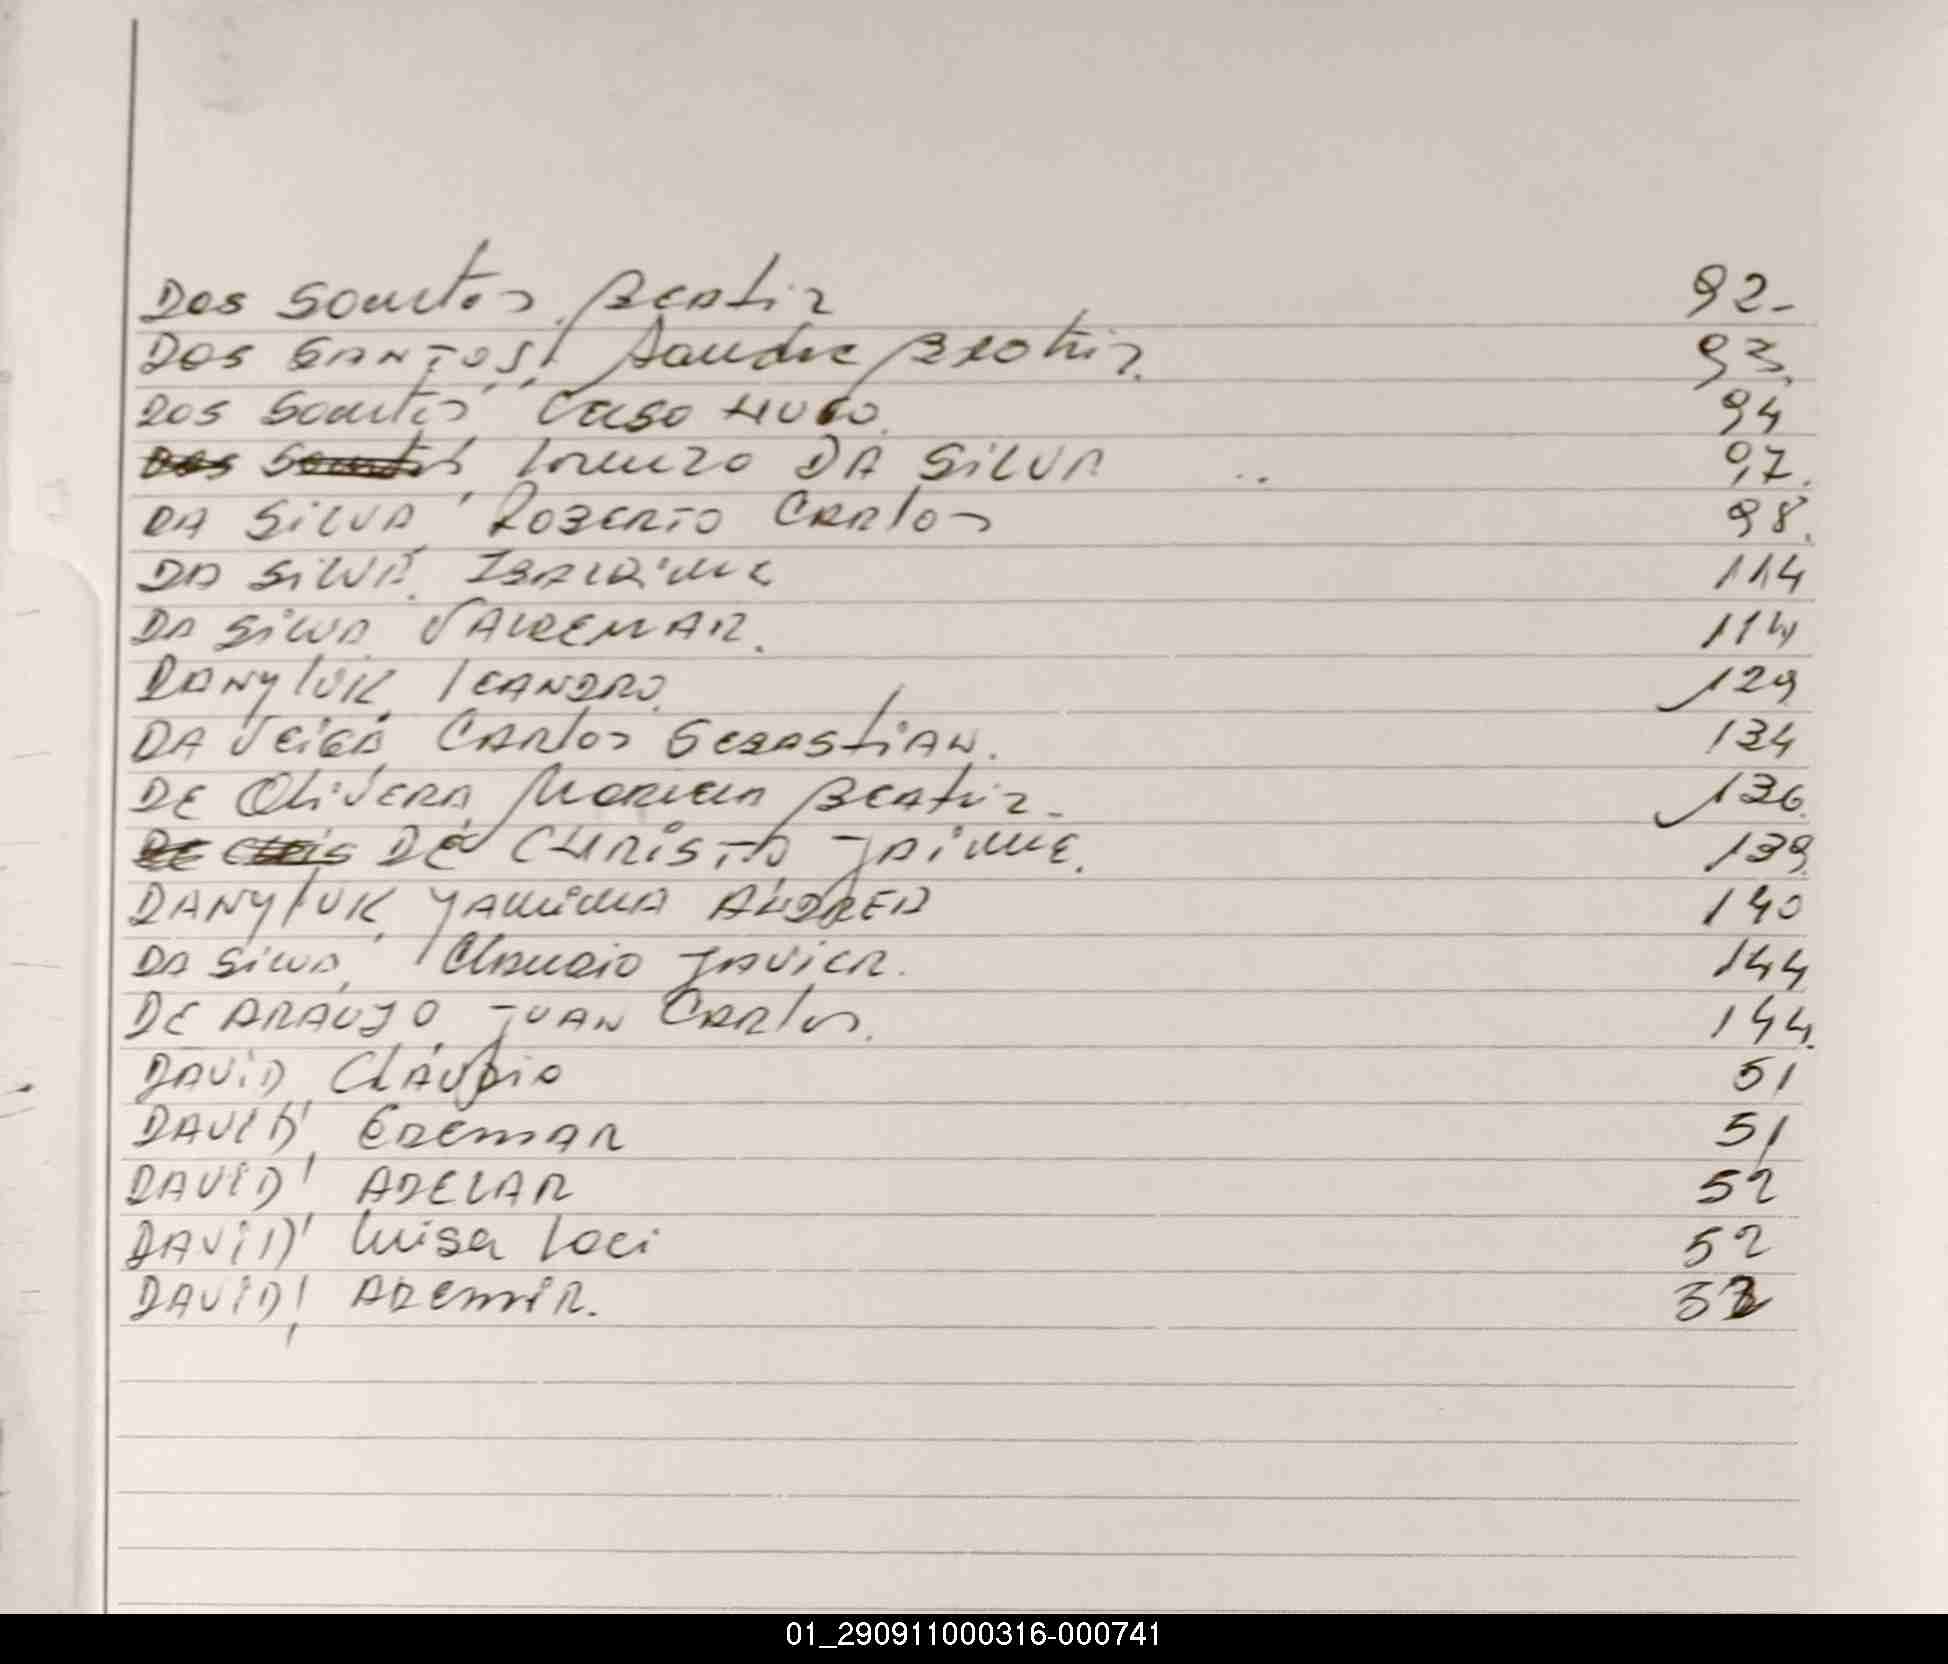 Dos Santos, Beatiz 92-
DOS SANTOS, Sandra Beatriz. 93.
DOS Santos, Celso HUGO. 94
Dos Santos, Lorenzo DA SILVA .. 97.
DA SILVA, ROBERTO Carlos 98.
DA SILVA, 114
DA SILVA, VALDEMAR. 114
DANYlUK, lEANDRO. 129
DA VEIGA, CARlos SEBAStiAN. 134
DE OliVERA, Beatriz- 136.
DE DE CHRISTO JAIME. 139.
DANYlUK, YAMIMA ANDREA 140
DA SILVA, Claudio JAVIER. 144
DE ARAUJO, JUAN CARlos. 144.
DAVID, CLAUDIO 51
DAVID, EDEMAR 51
DAVID, ADELAR 52
DAVID, Luisa Loci 52
DAVID, ADEMIR.
01_290911000316-000741